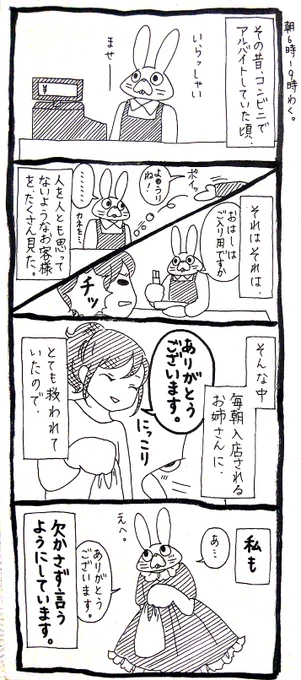 朝6時-9時わく。
その昔、コンビニで
アルバイトしていた頃、
いらっしゃい
ませー
¥
それはそれは、
ポイッ
よろうり
ね！
………
カネを…
おはしは
ご入り用ですか
チッ
人を人とも思って
ないようなお客様
を、たくさん見た。
そんな中
毎朝入店される
お姉さんに、
ありがとう
ございます。
にっこり
とても救われて
いたので、
私も
あ…
えへ。
ありがとう
ございます。
欠かさず言う
ようにしています。